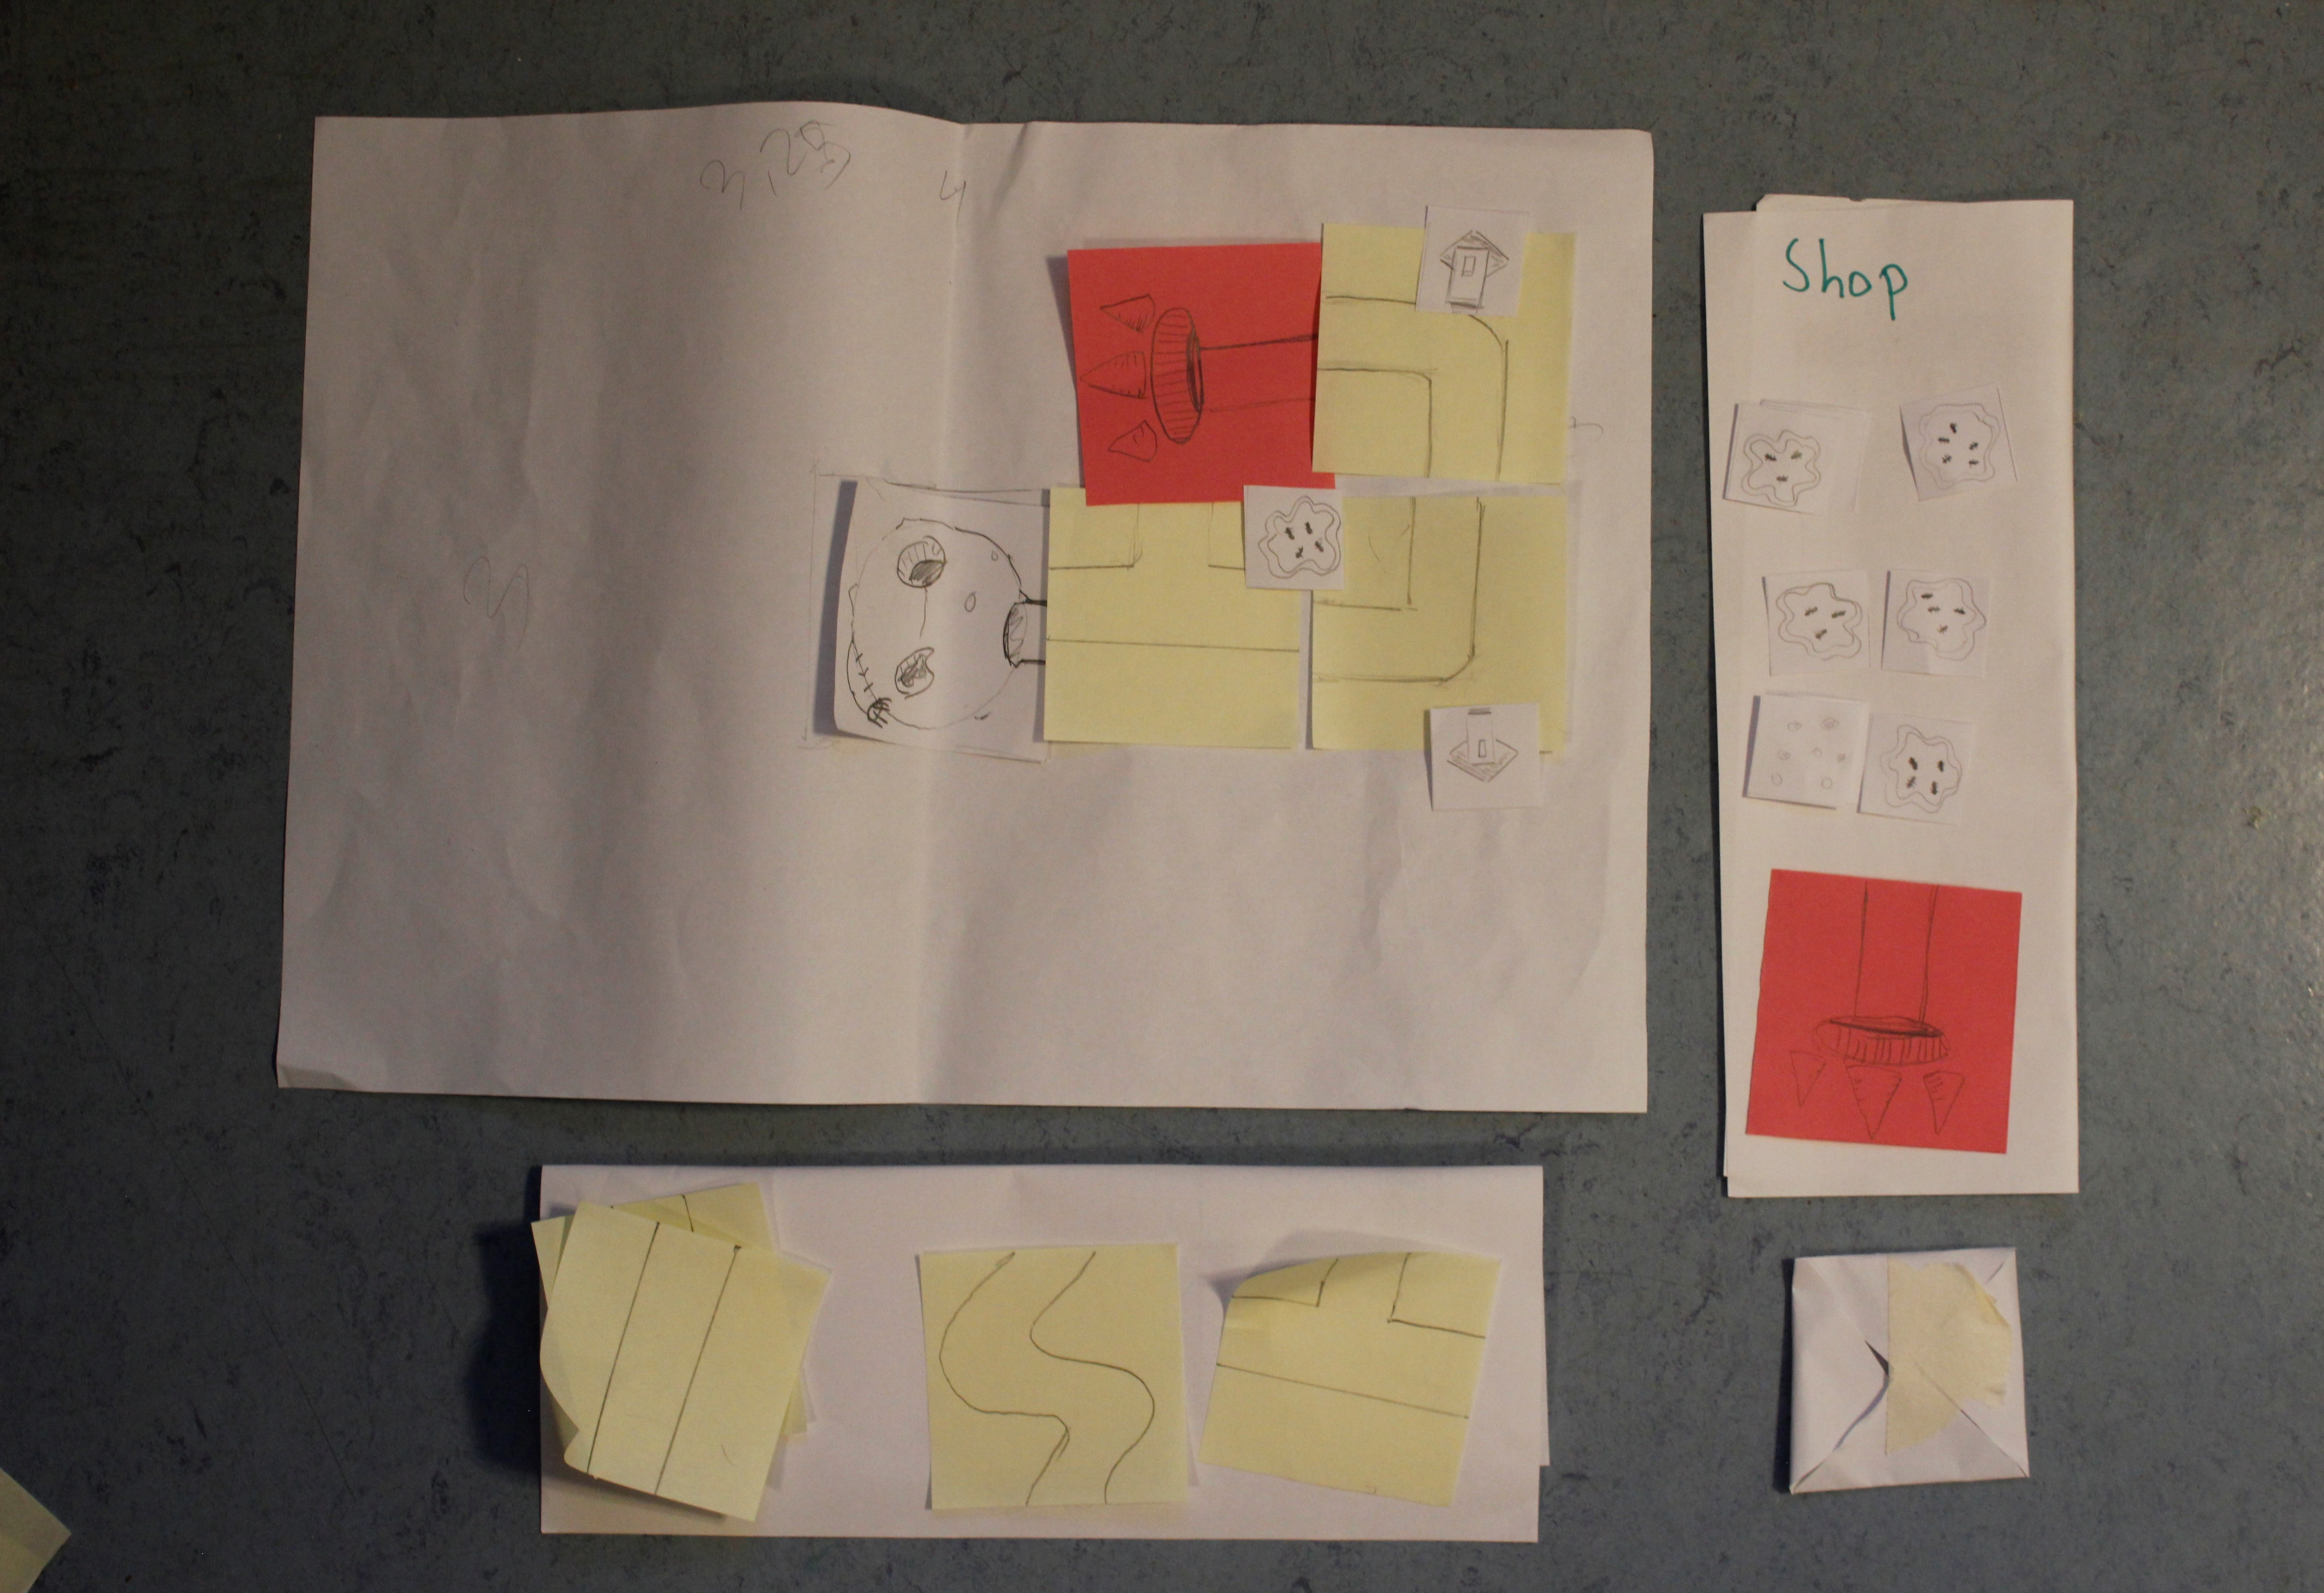 3,25
4
3
Shop